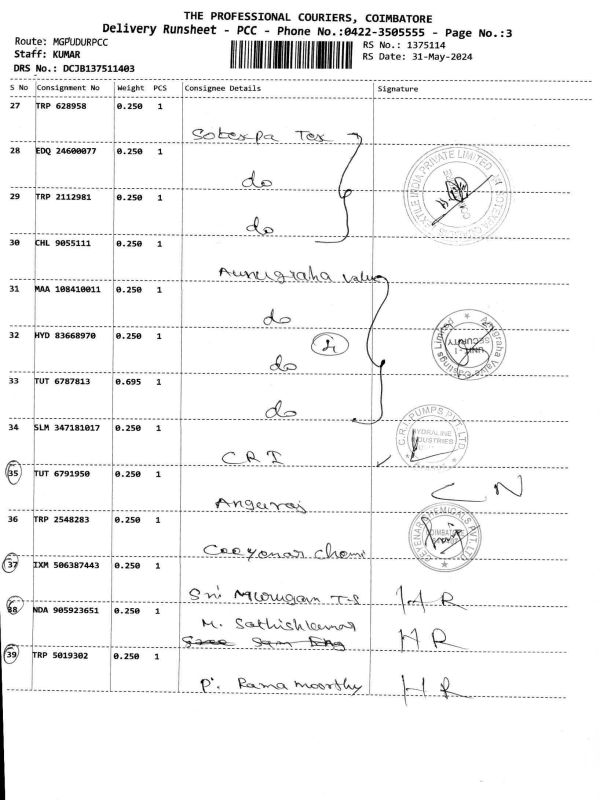 THE PROFESSIONAL COURIERS, COIMBATORE
Delivery Runsheet - PCC - Phone No.:0422-3505555 - Page No.:3
Route: MGPUDURPCC
RS No.: 1375114
Staff: KUMAR
RS Date: 31-May-2024
DRS No.: DCJB137511403
S No Consignment No Weight PCS Consignee Details Signature
27 TRP 628958 0.250 1
Sotexpa Tex
28 EDQ 24600077 0.250 1
do
29 TRP 2112981 0.250 1
do
30 CHL 9055111 0.250 1
Aunugraha value
31 MAA 108410011 0.250 1
do
32 HYD 83668970 0.250 1
do
33 TUT 6787813 0.695 1
do
34 SLM 347181017 0.250 1
C.R.I. PUMPS PVT. LTD
HYDRALINE
INDUSTRIES
C R I
35 TUT 6791950 0.250 1
CN
Anguraj
36 TRP 2548283 0.250 1
COIMBATORE
Ceeyenar Chemi
37 IXM 506387443 0.250 1
Sri Murugan T-S
HR
38 NDA 905923651 0.250 1
M. Sathishkumar
HR
39 TRP 5019302 0.250 1
P. Ramamoorthy
HR